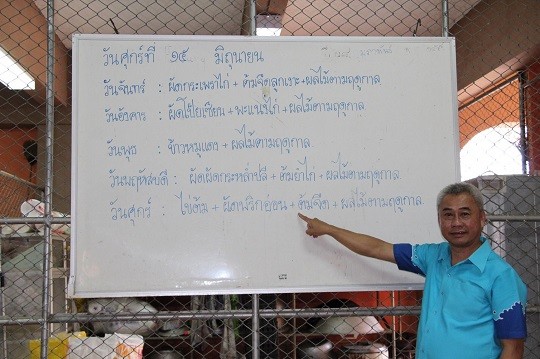 วันศุกร์ที่ ๑๕ มิถุนายน
วันจันทร์ : ผัดกระเพราไก่ + ต้มจืดลูกเงาะ + ผลไม้ตามฤดูกาล
วันอังคาร : ผัดโป๊ยเซียน + พะแนงไก่ + ผลไม้ตามฤดูกาล
วันพุธ : ข้าวหมูแดง + ผลไม้ตามฤดูกาล
วันพฤหัสบดี : ผัดผัดกระหล่ำปลี + ต้มยำไก่ + ผลไม้ตามฤดูกาล.
วันศุกร์ : ไข่ต้ม + ผัดพริกอ่อน + ต้มจืด + ผลไม้ตามฤดูกาล.